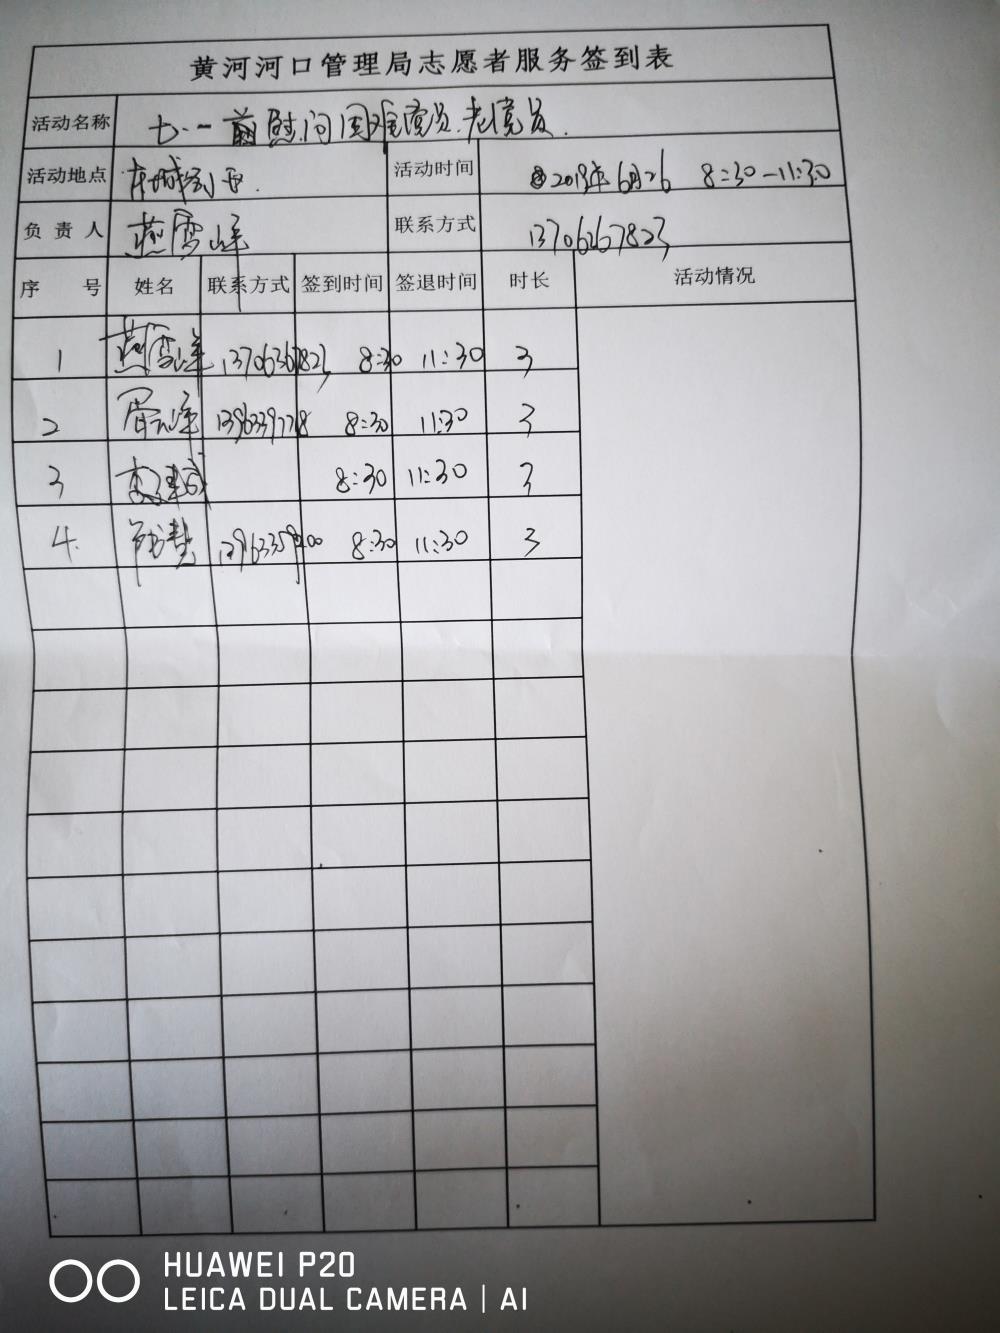 黄河河口管理局志愿者服务签到表
活动名称 七·一前慰问困难党员、老党员.
活动地点 东城 活动时间 2019年6月26 8:30-11:30
负责人 燕雪峰 联系方式 13706367823
序号 姓名 联系方式 签到时间 签退时间 时长 活动情况
1 燕雪峰 13706367823 8:30 11:30 3
2 8:30 11:30 3
3 8:30 11:30 3
4. 8:30 11:30 3
HUAWEI P20
LEICA DUAL CAMERA | AI